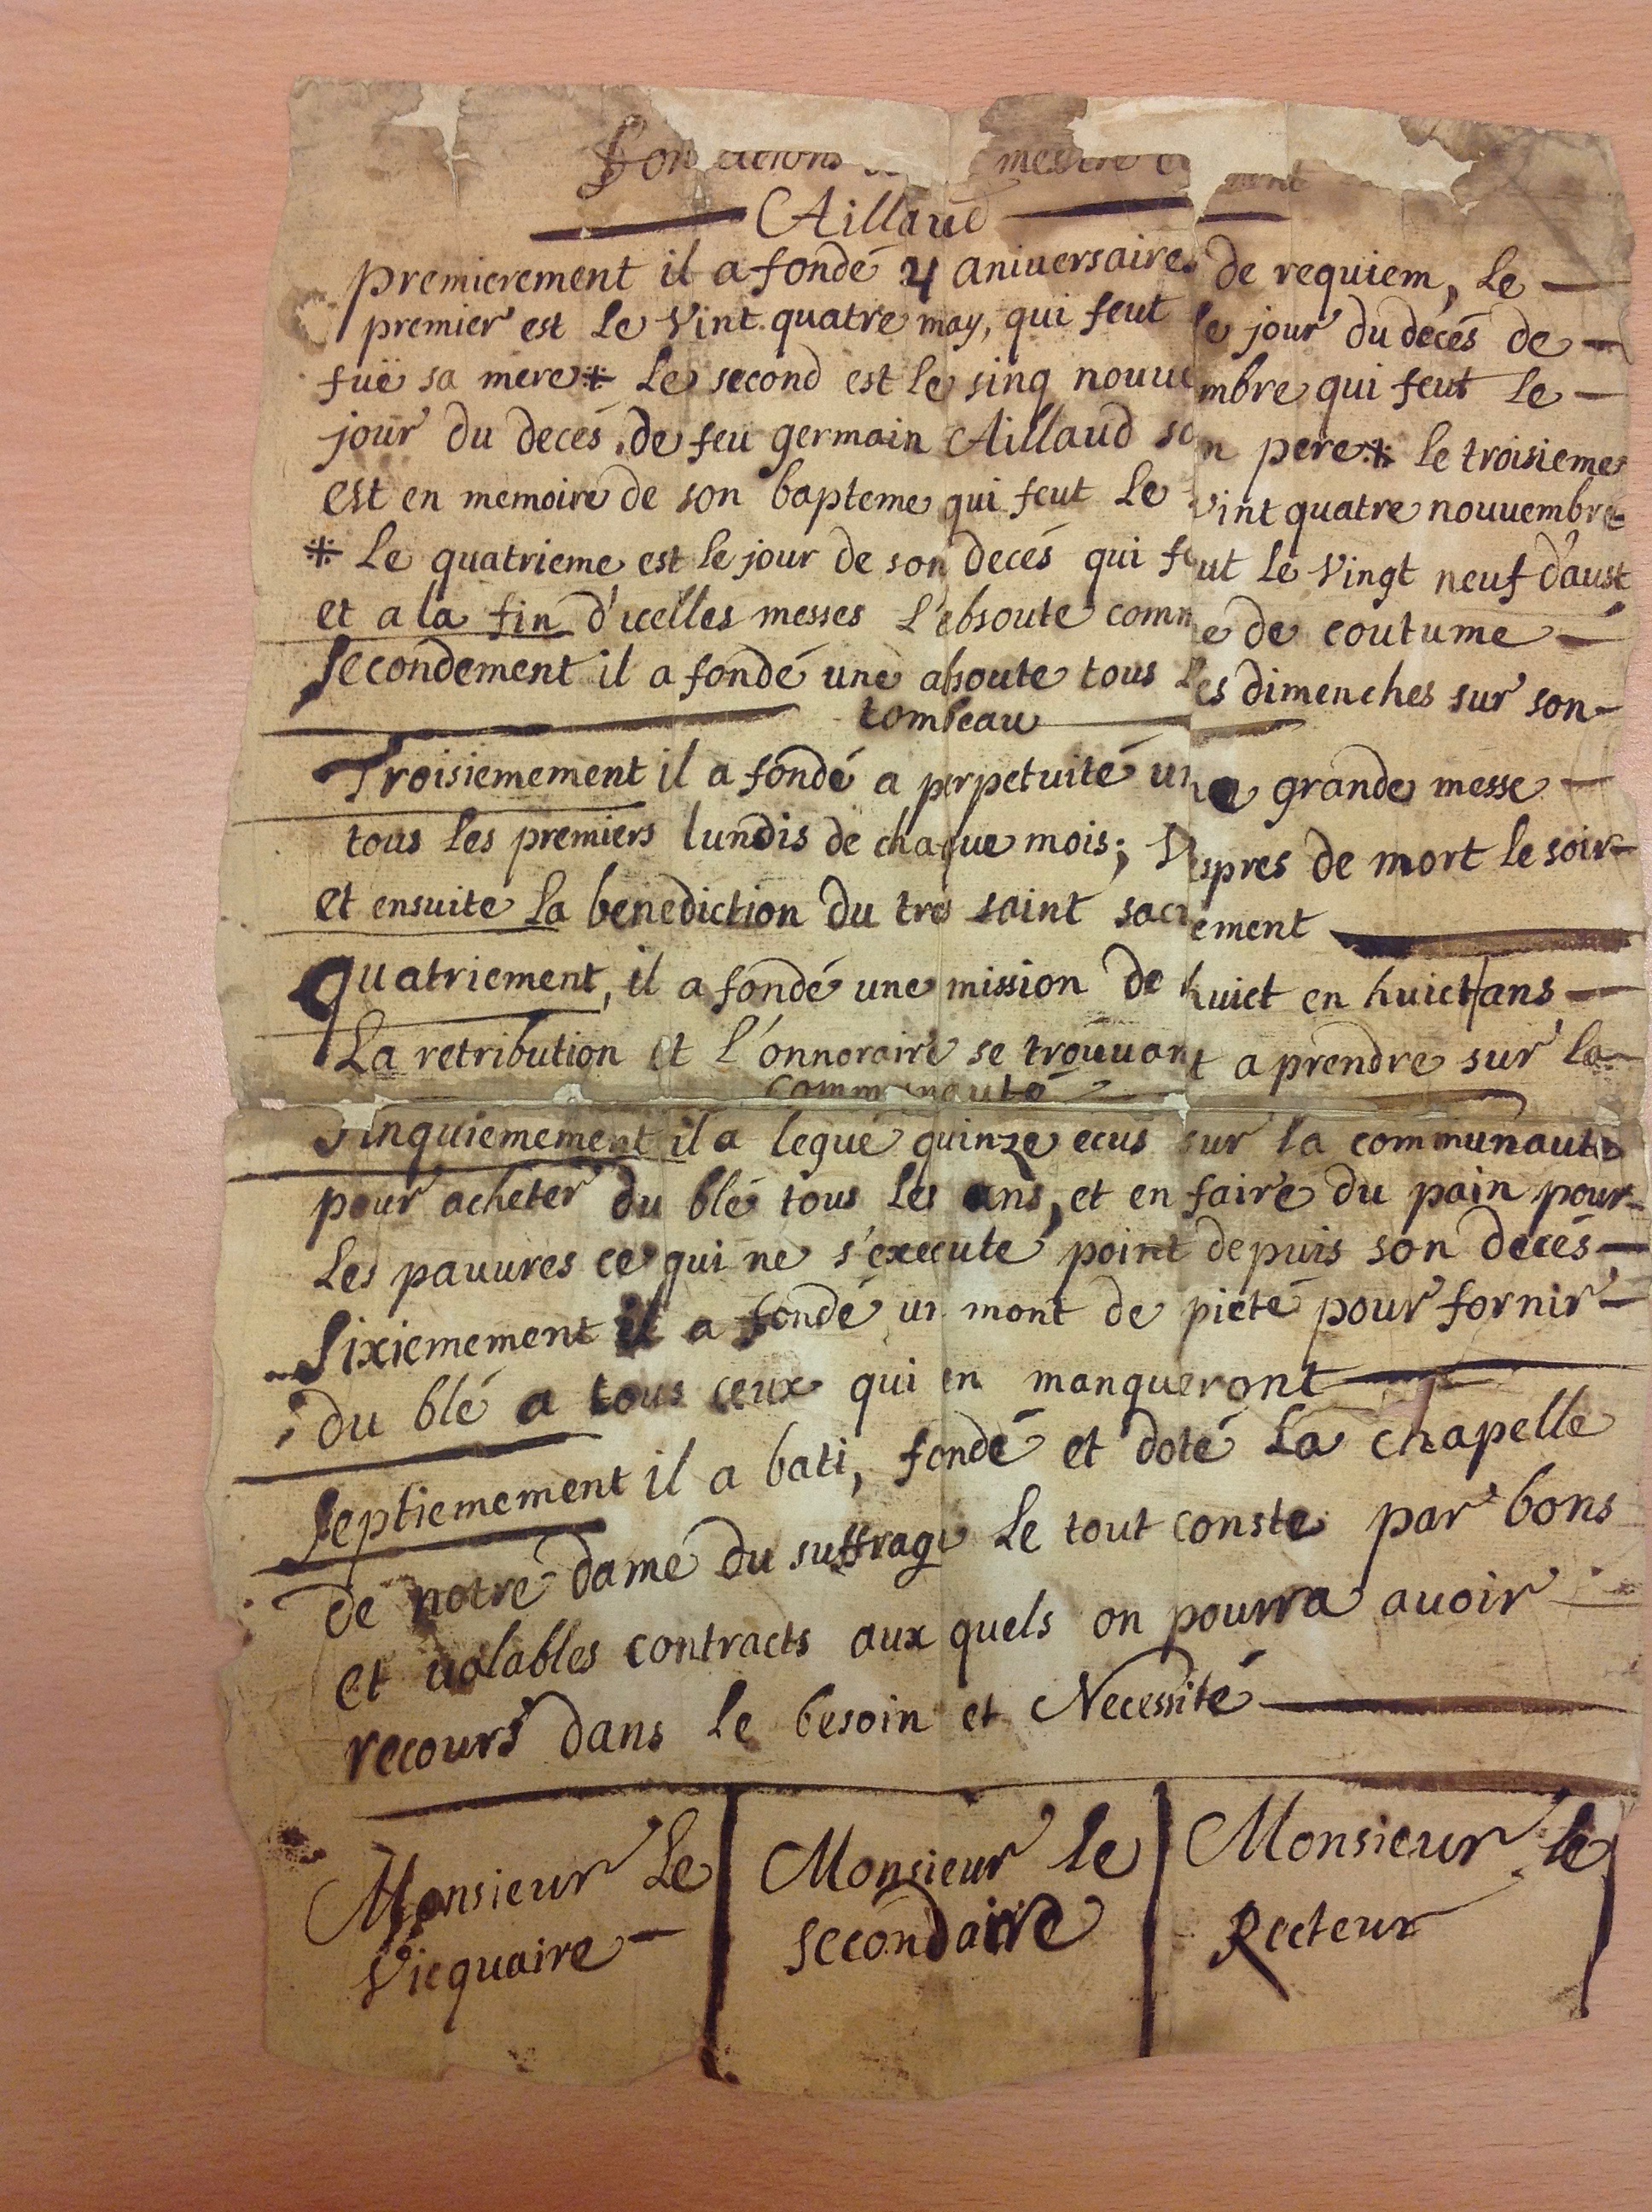 Fondations
Aillaud
premierement il a fondé 4 aniuersaires de requiem, Le
premier est Le Vint quatre may, qui feut le jour du decés de
fuë sa mere * Le second est le sinq nouuembre qui feut Le
jour du decés de feu germain Aillaud son pere * le troisieme
est en memoire de son bapteme qui feut Le vint quatre nouuembre
* Le quatrieme est le jour de son decés qui feut Le Vingt neuf d'aust
et a la fin d'icelles messes L'ebsoute comme de coutume
Secondement il a fondé une absoute tous Les dimenches sur son
tombeau
Troisiemement il a fondé a perpetuité une grande messe
tous Les premiers lundis de chaque mois; Vespres de mort le soir
et ensuite La benediction du tres saint sacrement
quatriement, il a fondé une mission de huict en huict ans
La retribution et l'onnoraire se trouuant a prendre sur la
Communauté
Sinquiemement il a legué quinze ecus sur la communauté
pour acheter du blé tous Les ans, et en faire du pain pour
Les pauures ce qui ne s'execute point depuis son decés
Sixiemement il a fondé un mont de pieté pour fornir
du blé a tous ceux qui en manqueront
Septiemement il a bati, fondé et doté La chapelle
de notre dame du suffrage Le tout conste par bons
et ualables contracts aux quels on pourra auoir
recours dans le besoin et Necessité
Monsieur Le
Vicquaire
Monsieur le
secondaire
Monsieur le
Recteur